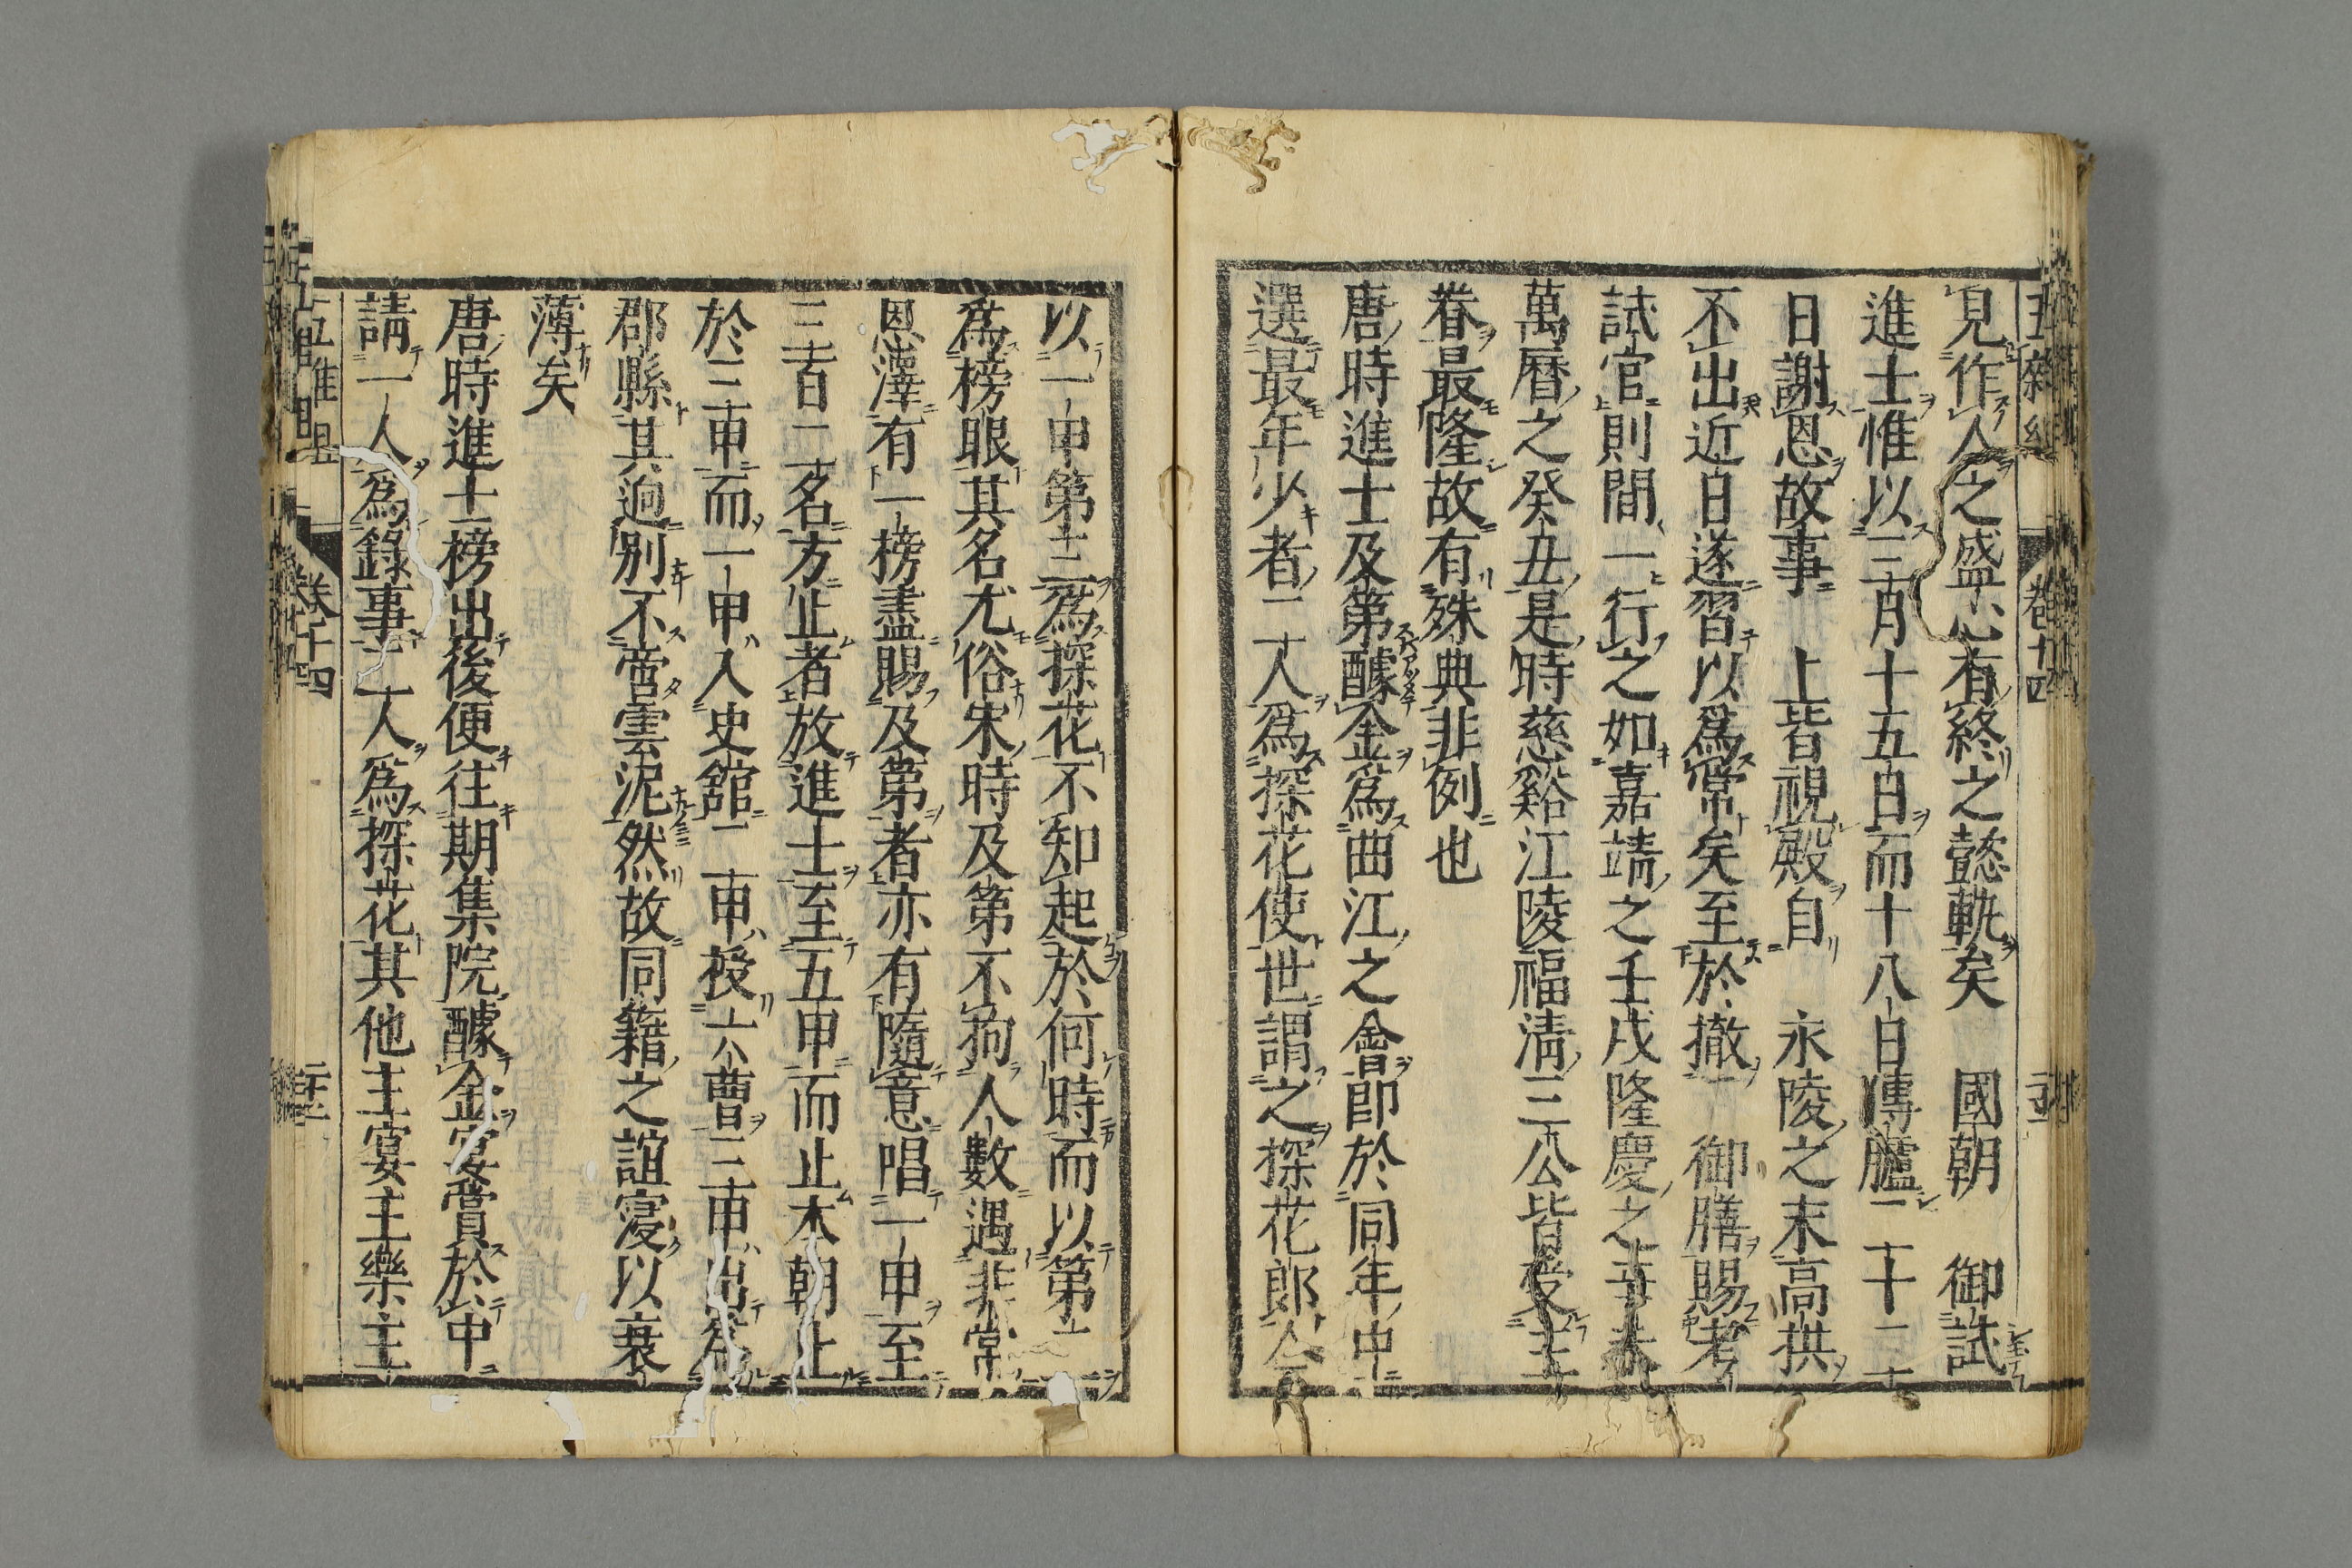 五雜組 卷十四
見作人之盛心有終之懿軌矣 國朝 御試
進士惟以三月十五日而十八日傳臚二十二
日謝恩故事 上皆視殿自 永陵之末高拱
不出近日遂習以爲常矣至於撤 御膳賜考
試官則間一行之如嘉靖之壬戌隆慶之
萬曆之癸丑是時慈谿江陵福淸三公皆受主
眷最隆故有殊典非例也
唐時進士及第醵金爲曲江之會即於同年中
選最年少者二人爲探花使世謂之探花郎今
以一甲第三爲探花不知起於何時而以第二
爲榜眼其名尤俗宋時及第不拘人數遇非常
恩澤有一榜盡賜及第者亦有隨意唱一甲至
三百二名方止者放進士至五甲而止本朝止
於三甲而一甲入史舘二甲授六曹三甲出爲
郡縣其逈別不啻雲泥然故同籍之誼寖以衰
薄矣
唐時進士榜出後便往期集院醵金宴賞於中
請一人爲錄事二人爲探花其他主宴主樂主
卷十四